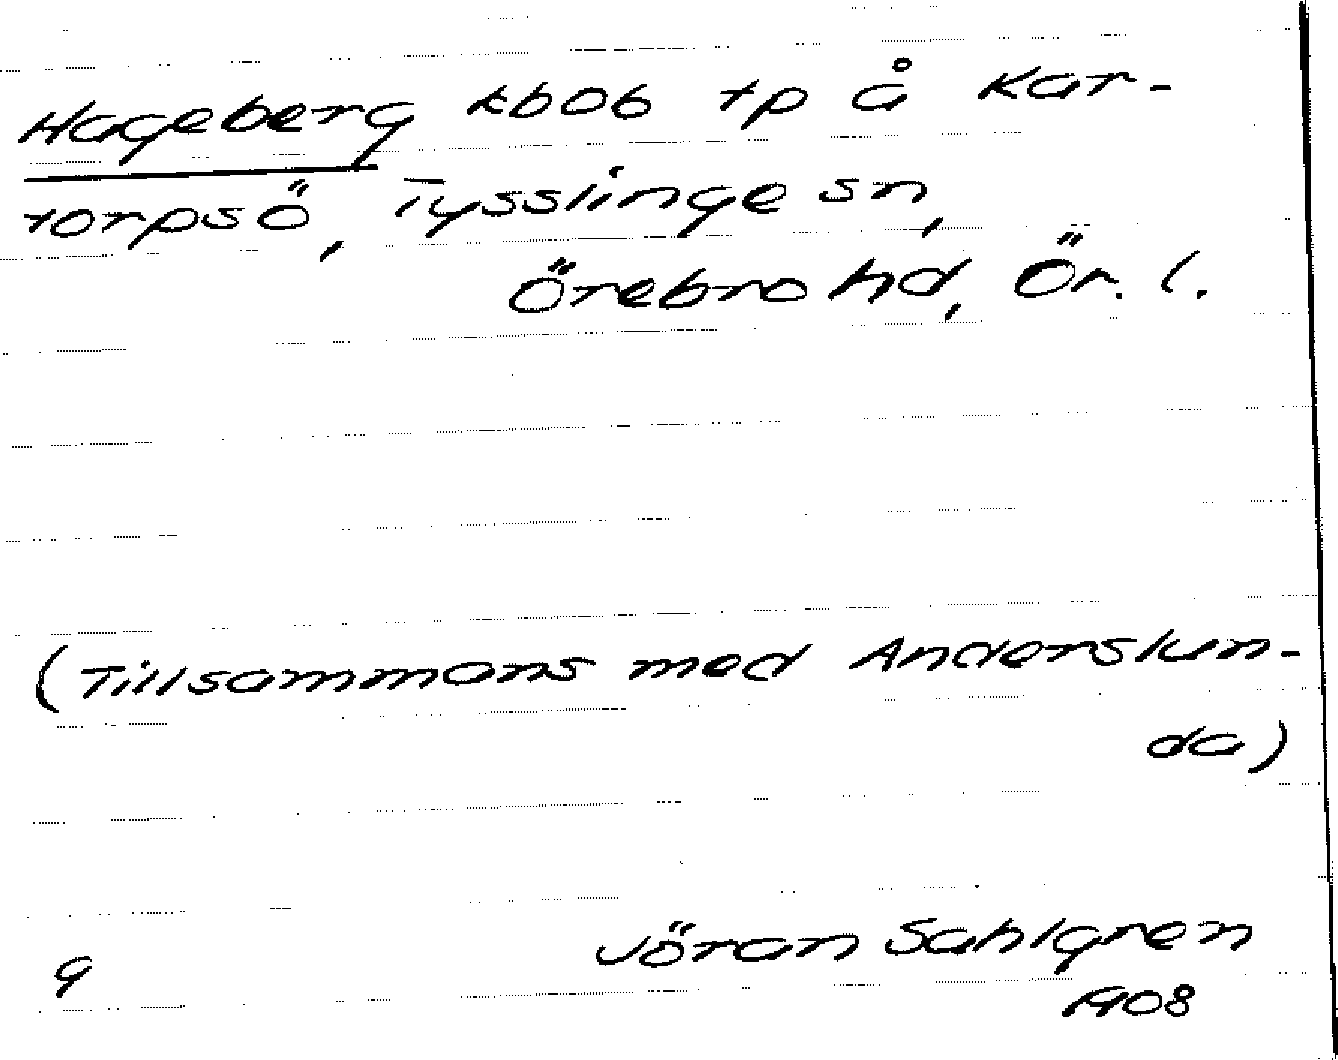 Hageberg kbob tp å Kar-
torpsö, Tysslinge sn,
Örebro hd, Ör. l.
(Tillsammans med Anderslun-
da)
Jöran Sahlgren
9 1908